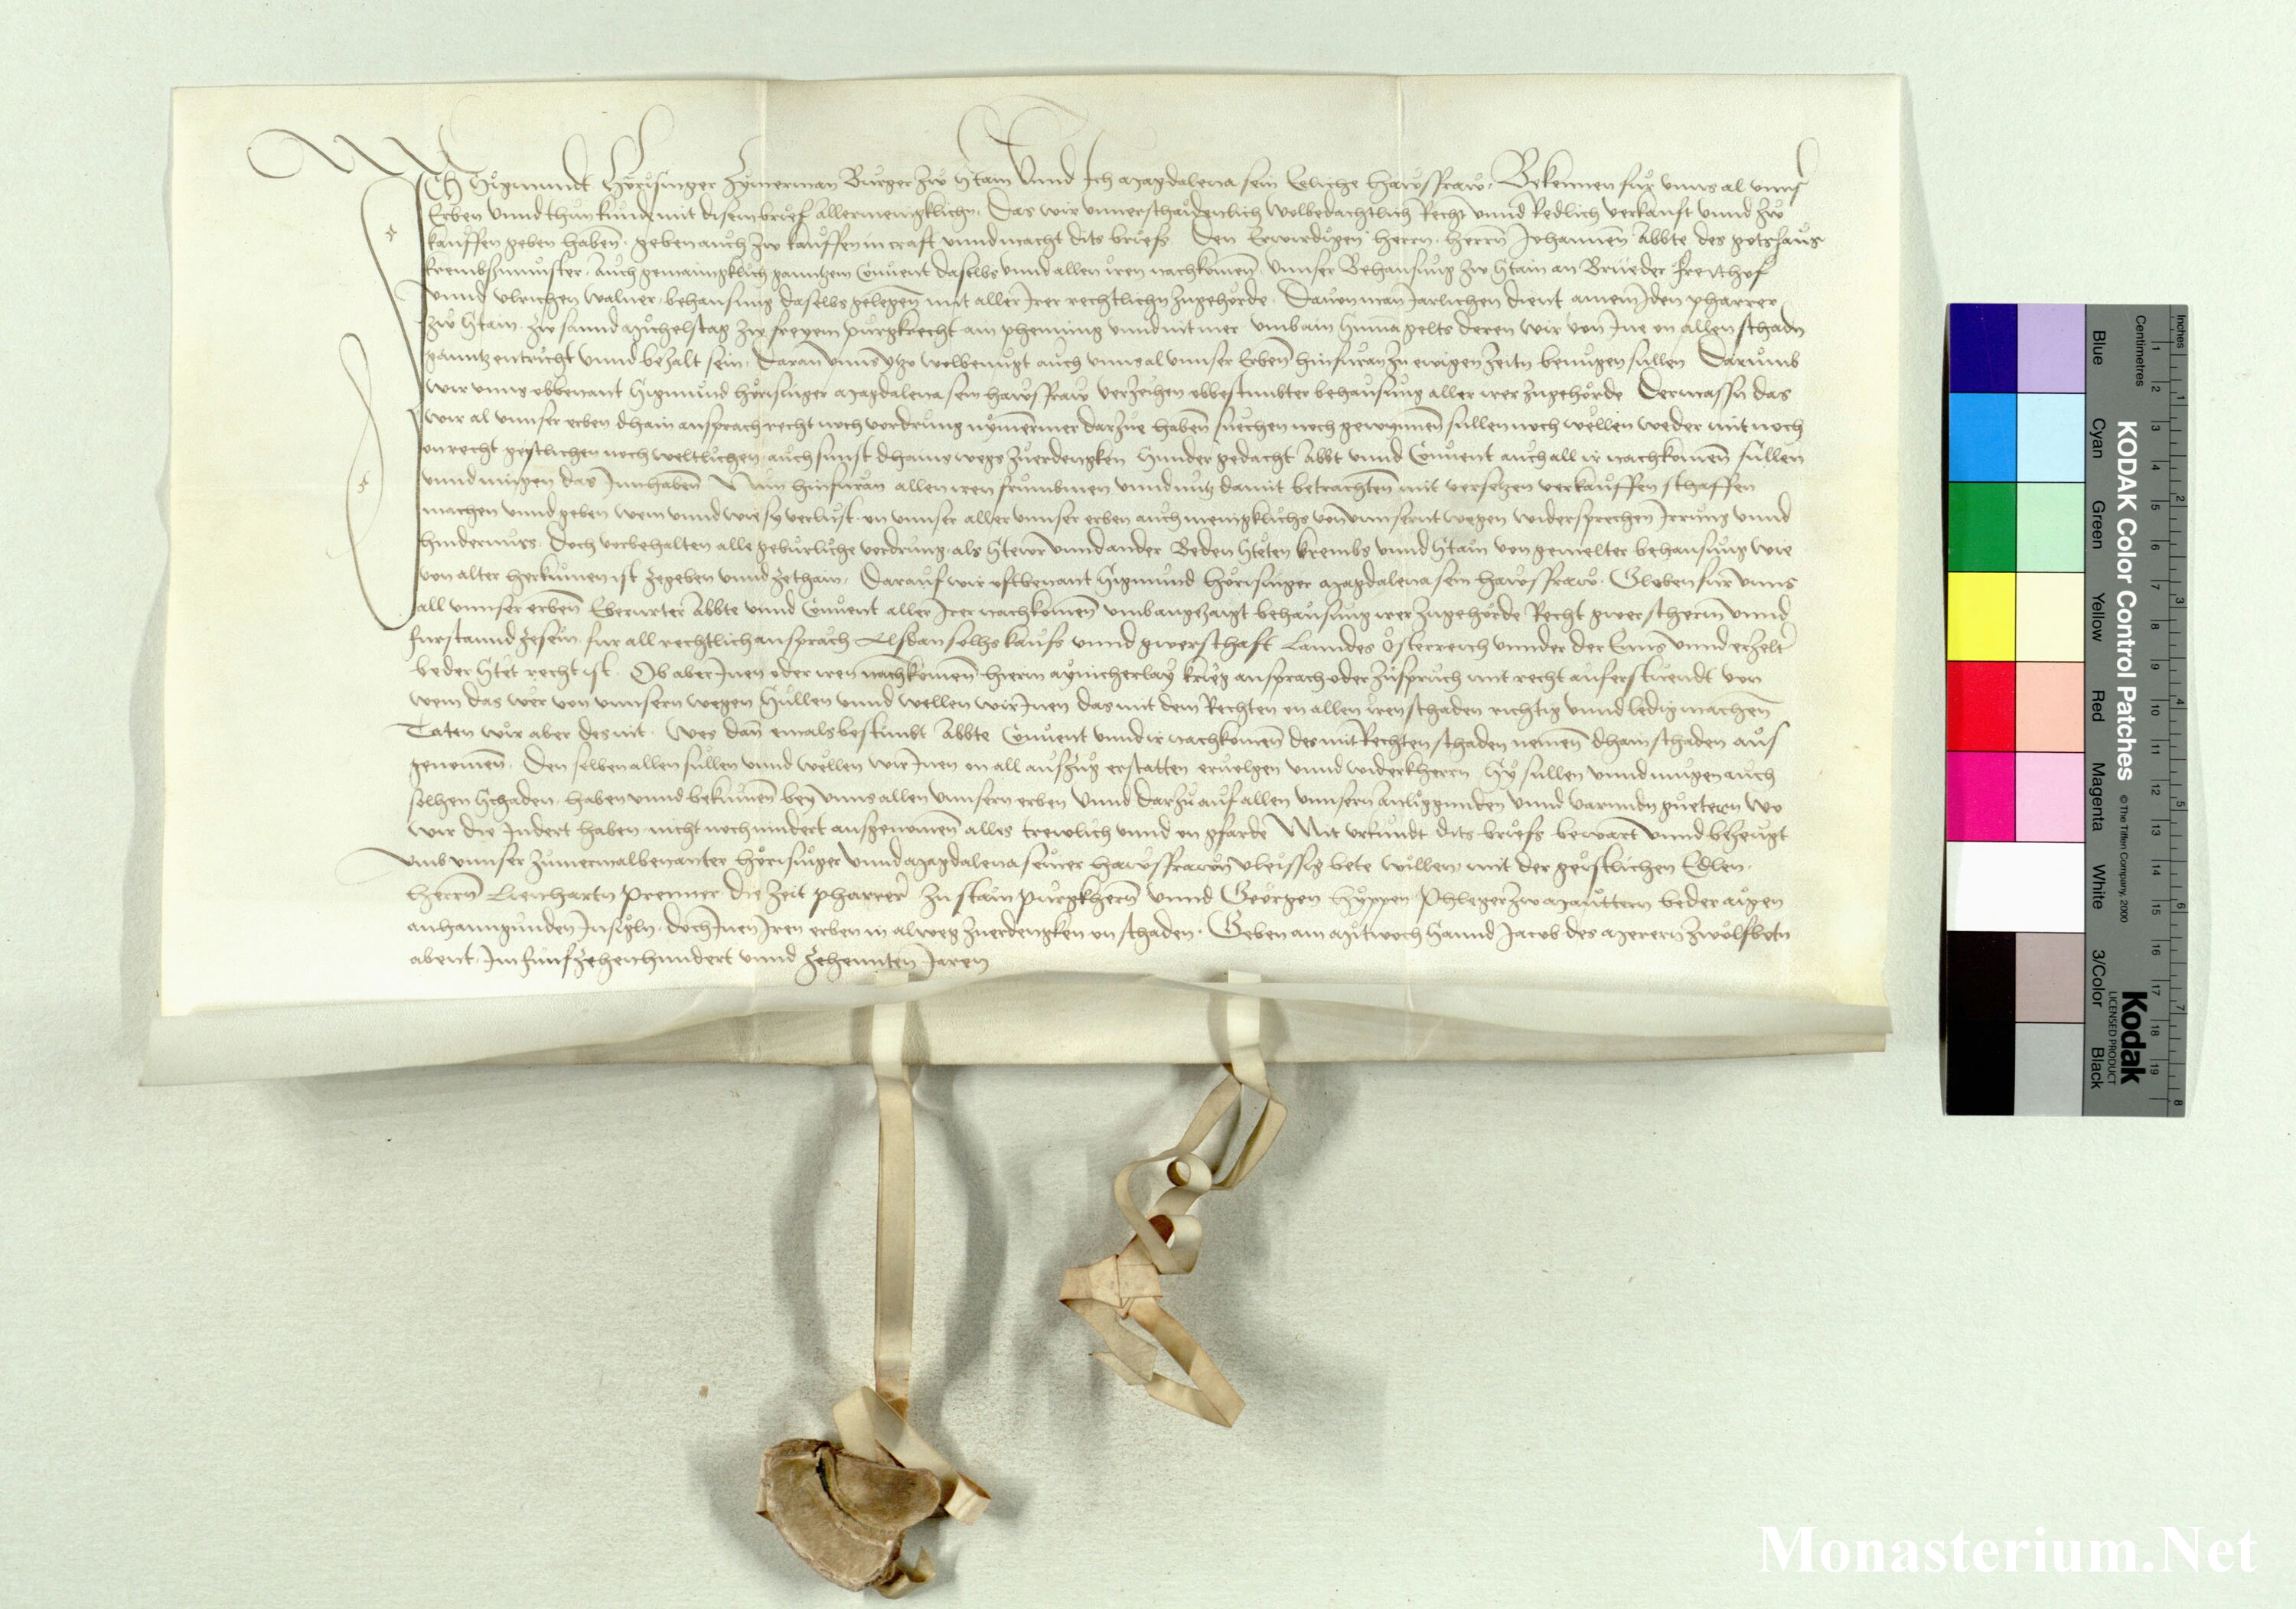 Ich Sigmundt Hörisinger Zymerman Burger zw Stain Vnnd Ich Magdalena sein Eeliche Hawsffraw. Bekennen fur vnns al vnns
Erben vnnd thun kund mit disem brief allermenigklichn. Das wir vnnerschaidenlich wolbedachtlich Recht vnnd Redlich verkauft vnnd zw
kauffen geben haben. geben auch zw kauffen in craft vnnd macht dits briefs. Den Erwirdigen herrn. herrn Johannen Abbte des gotshaus
krembsmunster. Auch gemaingklich ganntzem Conuent daselbs vnnd allen iren nachkomen. vnnser Behausung zw Stain an Brüeder freithof
vnnd vlrichen walner behausung daselbs gelegen mit aller Irer rechtlichn zugehörde. Dauon man Jarlichen dient ainem Iden pharrer
zw Stain. zw sannd Michelstag zw freyem purgkrecht ain phening vnnd nit mer vmb ain Suma gelts deren wir von Ine on allen schadn
ganntz entricht vnnd bezalt sein. Daran vnns ytzo wolbenugt auch vnns al vnnser Erben hinfuran zu ewigen zeitn benugen sullen Darumb
wir vnns obbenant Sigmund hörisinger Magdalena sein hawsffraw verzeihen obbestimbter behausung aller irer zugehörde Dermassn das
wir al vnnser erben dhain ansprach recht noch vordrung nymermer darzue haben suechen noch gewynnen sullen noch wellen weder mit noch
on recht geistlichen noch weltlichen. auch sunst dhains wegs zuerdengken Sunder gedacht Abbt vnnd Conuent auch all ir nachkomen sullen
vnnd mugen das Innhaben Nun hinfuran allen iren frumbmen vnnd nutz damit betrachten mit versetzen verkauffen schaffen
machen vnnd geben wem vnnd wie sy verlust. on vnnser aller vnnser erben auch menigklichs von vnnsernt wegen widersprechen Irrung vnnd
hindernuss. Doch vorbehalten alle geburliche vordrung. als Stewr vnnd ander Beden Steten krembs vnnd Stain von gemelter behausung wie
von alter herkumen ist zegeben vnnd zethain. Darauf wir oftbenant Sigmund hörisinger Magdalena sein hawsffraw. Globen fur vnns
all vnnser erben Eberurter Abbte vnnd Conuent aller Irer nachkomen vmb angezaigt behausung irer zugehörde Recht gwer scherm vnnd
furstannd zesein. fur all rechtlich ansprach Alsdan solhs kaufs vnnd gwerschaft Lanndes Österreich vnnder der Enns vnnd erzelter
beder Stet recht ist. Ob aber Inen oder iren nachkomen hierin aynicherlay krieg ansprach oder zuspruch mit recht auferstuendt von
wem das wer von vnnsern wegen Sullen vnnd wellen wir Inen das mit dem Rechten on allen iren schaden richtig vnnd ledig machen
Taten wir aber des nit. Wes dan emalsbestimbt Abbte Conuent vnnd ir nachkomen des mit Rechten schaden nemen dhain schaden aus
genomen. Den selben allen sullen vnnd wellen wir Inen on all aufzug erstatten eruolgen vnnd widerkherrn Sy sullen vnnd mugen auch
solhen Schaden. haben vnnd bekumen bey vnns allen vnnsern erben vnnd darzu auf allen vnnsern anliggunden vnnd varundn guetern wo
wir die Indert haben nicht noch nindert ausgenomen alles trewlich vnnd on gfarde Mit vrkundt dits briefs bewart vnnd bezeugt
vmb vnnser zumermalbenanter hörisinger vnnd Magdalena seiner hawsffrawn vleissig bete willen mit der geistlichen Edlen.
Herrn Lienhartn Prenner die zeit pharrer zu stain purgkhern vnnd Georgen Hyppen Phleger zw Mauttern beder aigen
anhanngunden Insigln. doch Inen Iren erben in alweg zuerdengken on schaden. Geben am Mitwoch Sannd Jacob des Merern zwölfbotn
abent. Im funfzehenhundert vnnd zehennten Jaren
KODAK Color Control Patches
© The Tiffen Company, 2000
Kodak
LICENSED PRODUCT
Blue Cyan Green Yellow Red Magenta White 3/Color Black
Inches
Centimetres
1 2 3 4 5 6 7 8 9 10 11 12 13 14 15 16 17 18 19
1 2 3 4 5 6 7 8
Monasterium.Net